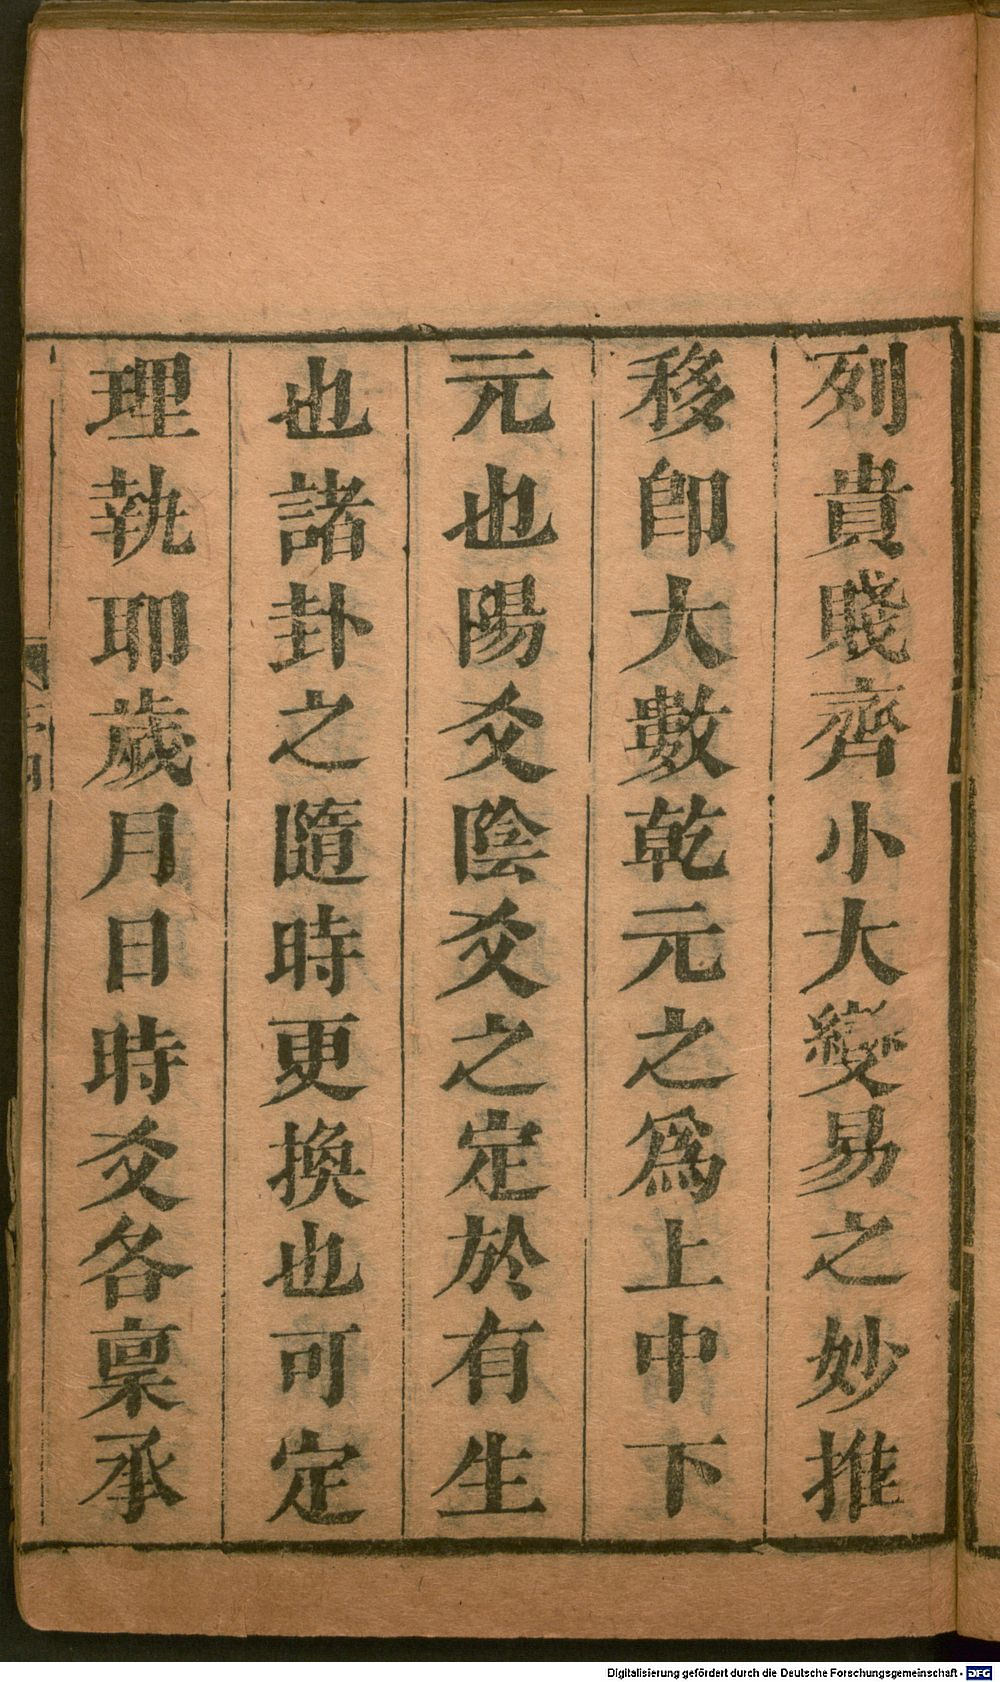 列貴賤齊小大變易之妙推
移卽大數乾元之爲上中下
元也陽爻陰爻之定於有生
也諸卦之隨時更換也可定
理執耶歲月日時爻各稟承
Digitalisierung gefördert durch die Deutsche Forschungsgemeinschaft - DFG